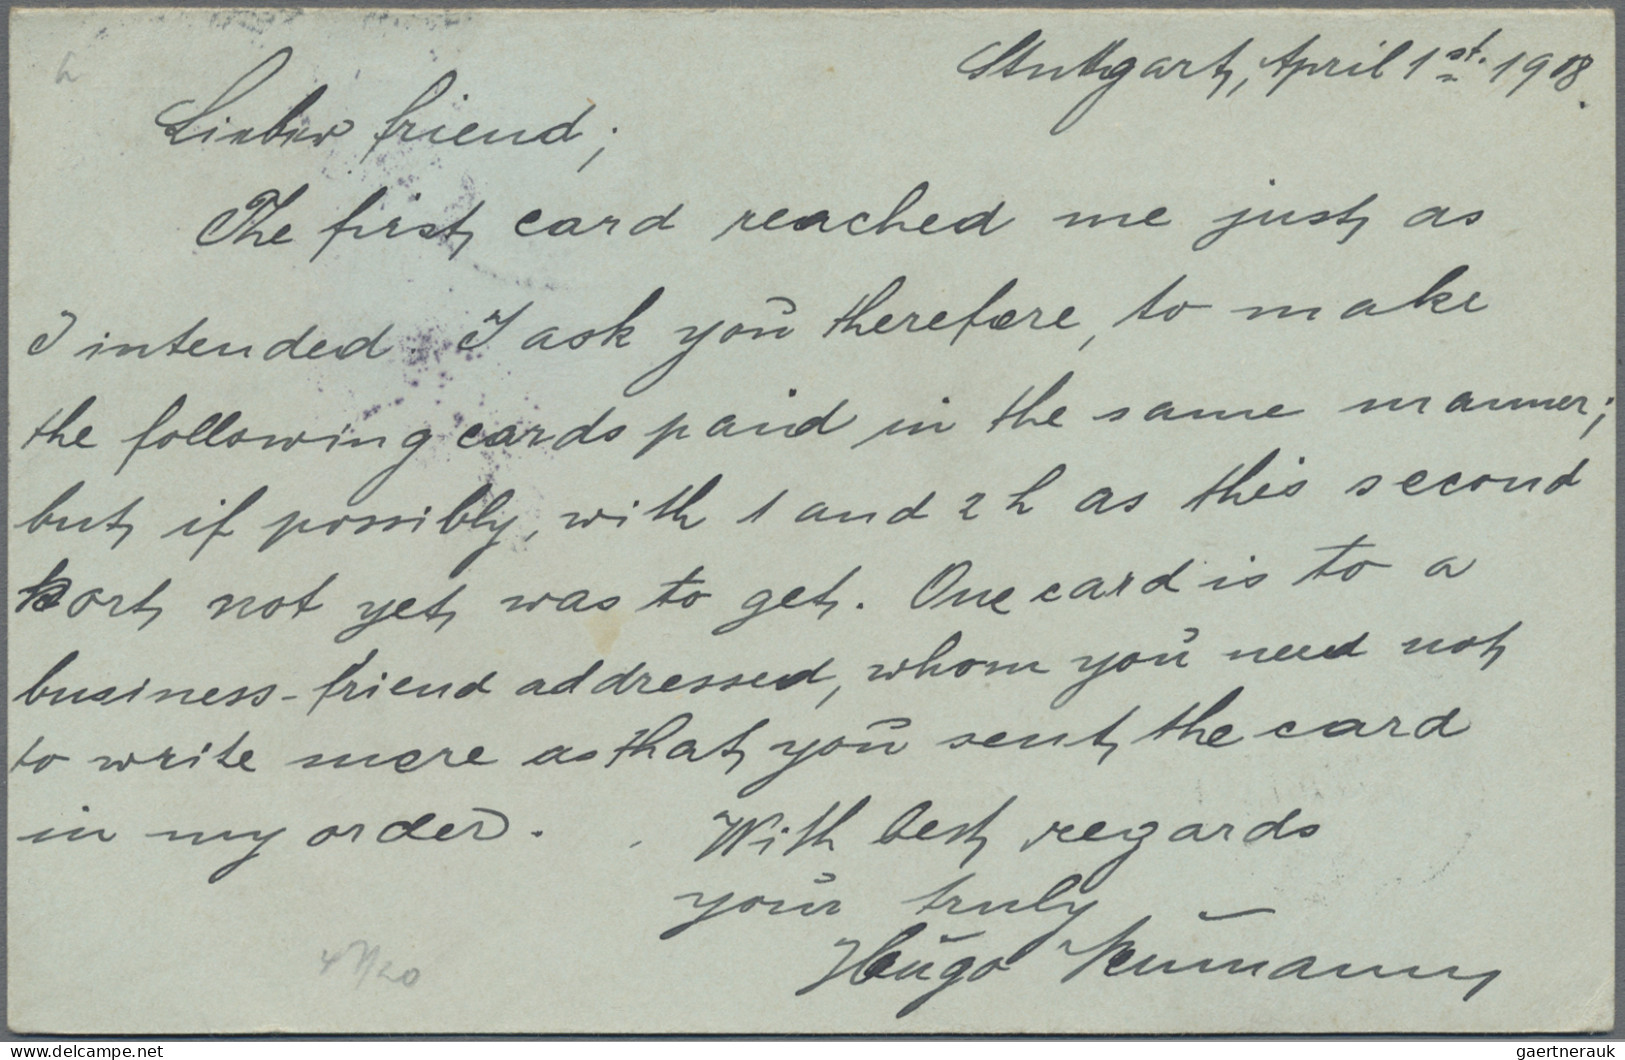 Stuttgart, April 1st. 1908.
Lieber friend;
The first card reached me just as
I intended. I ask you therefore, to make
the following cards paid in the same manner;
but if possibly, with 1 and 2 h as this second
kort not yet was to get. One card is to a
business-friend addressed, whom you need not
to write more as that you sent the card
in my order.
With best regards
your truly
Hugo Neumann
www.delcampe.net
gaertnerauk